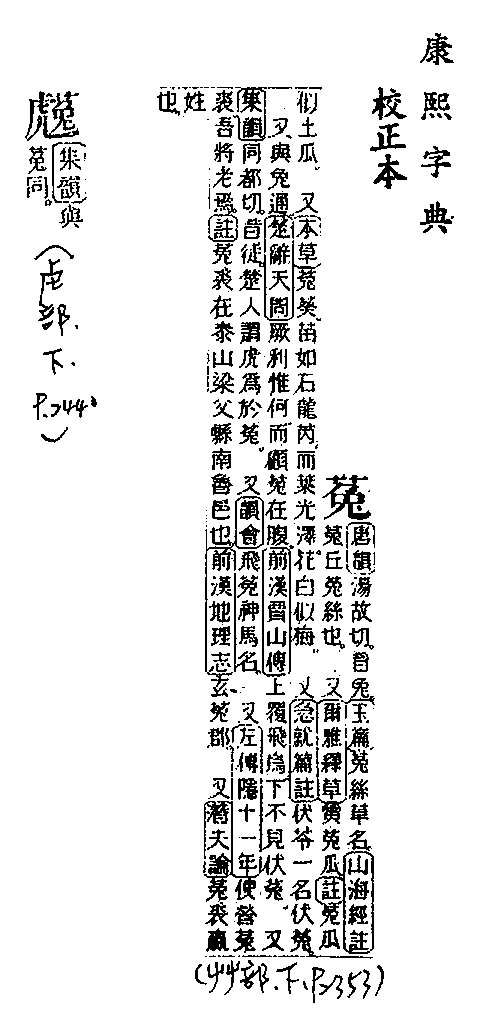 康熙字典
校正本
菟
唐韻湯故切。音兔。玉篇菟絲草名。山海經註
菟丘菟絲也。又爾雅釋草黃菟瓜註菟瓜
似土瓜。又本草菟葵苗如石龍芮而葉光澤。花白似梅。又急就篇註伏苓一名伏菟
又與兔通楚辭天問厥利惟何而顧菟在腹前漢賈山傳上覆飛鳥下不見伏菟。又
集韻同都切。音徒。楚人謂虎爲於菟。又韻會飛菟神馬名。又左傳隱十一年使營菟
裘吾將老焉。註菟裘在泰山梁父縣南魯邑也前漢地理志玄菟郡。又潛夫論菟裘嬴
姓也。
(艸部.下.P.353)
集韻與
菟同。
(虍部.下.P.244)